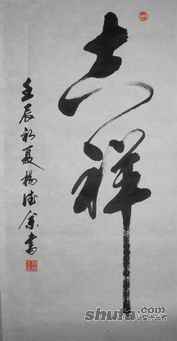 吉祥
壬辰初夏杨德余书
shufa.com